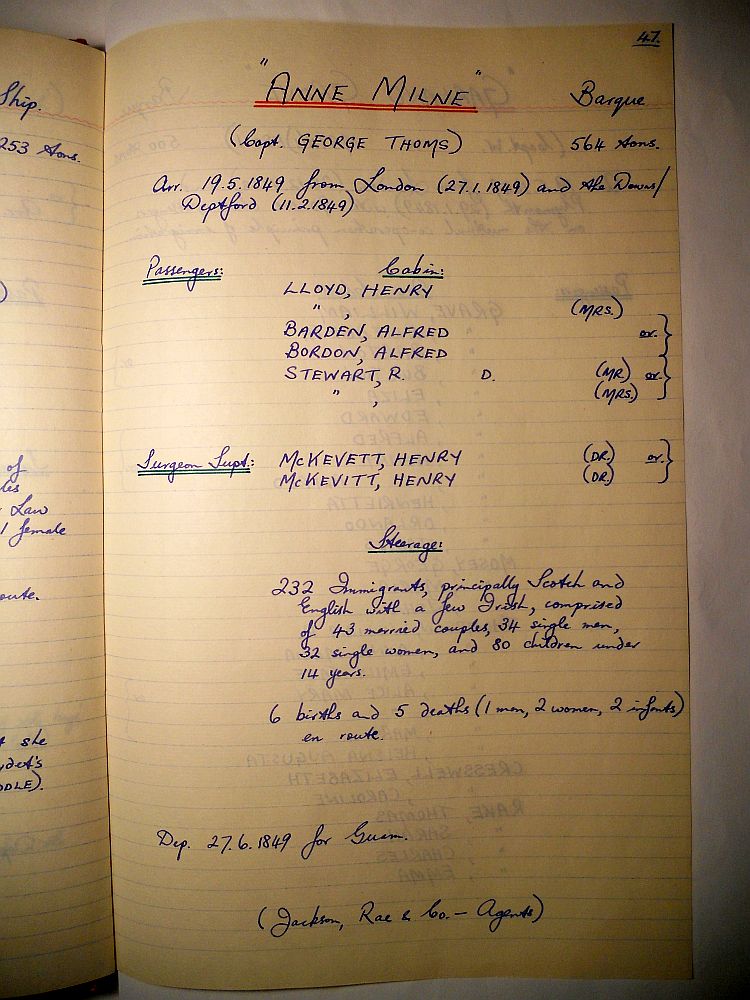 Ship.
253 tons.
of
Law
1 female
route.
she
47.
"ANNE MILNE" Barque
(Capt. GEORGE THOMS) 564 tons.
Arr. 19.5.1849 from London (27.1.1849) and the Downs/
Deptford (11.2.1849)
Passengers: Cabin:
LLOYD, HENRY
" , (MRS.)
BARDEN, ALFRED or. }
BORDON, ALFRED
STEWART, R. D. (MR) or. }
" , (MRS.)
Surgeon Supt: McKEVETT, HENRY (DR.) or. }
McKEVITT, HENRY (DR.)
Steerage:
232 Immigrants, principally Scotch and
English with a few Irish, comprised
of 43 married couples, 34 single men,
32 single women, and 80 children under
14 years.
6 births and 5 deaths (1 man, 2 women, 2 infants)
en route.
Dep. 27.6.1849 for Guam.
(Jackson, Rae & Co. - Agents)